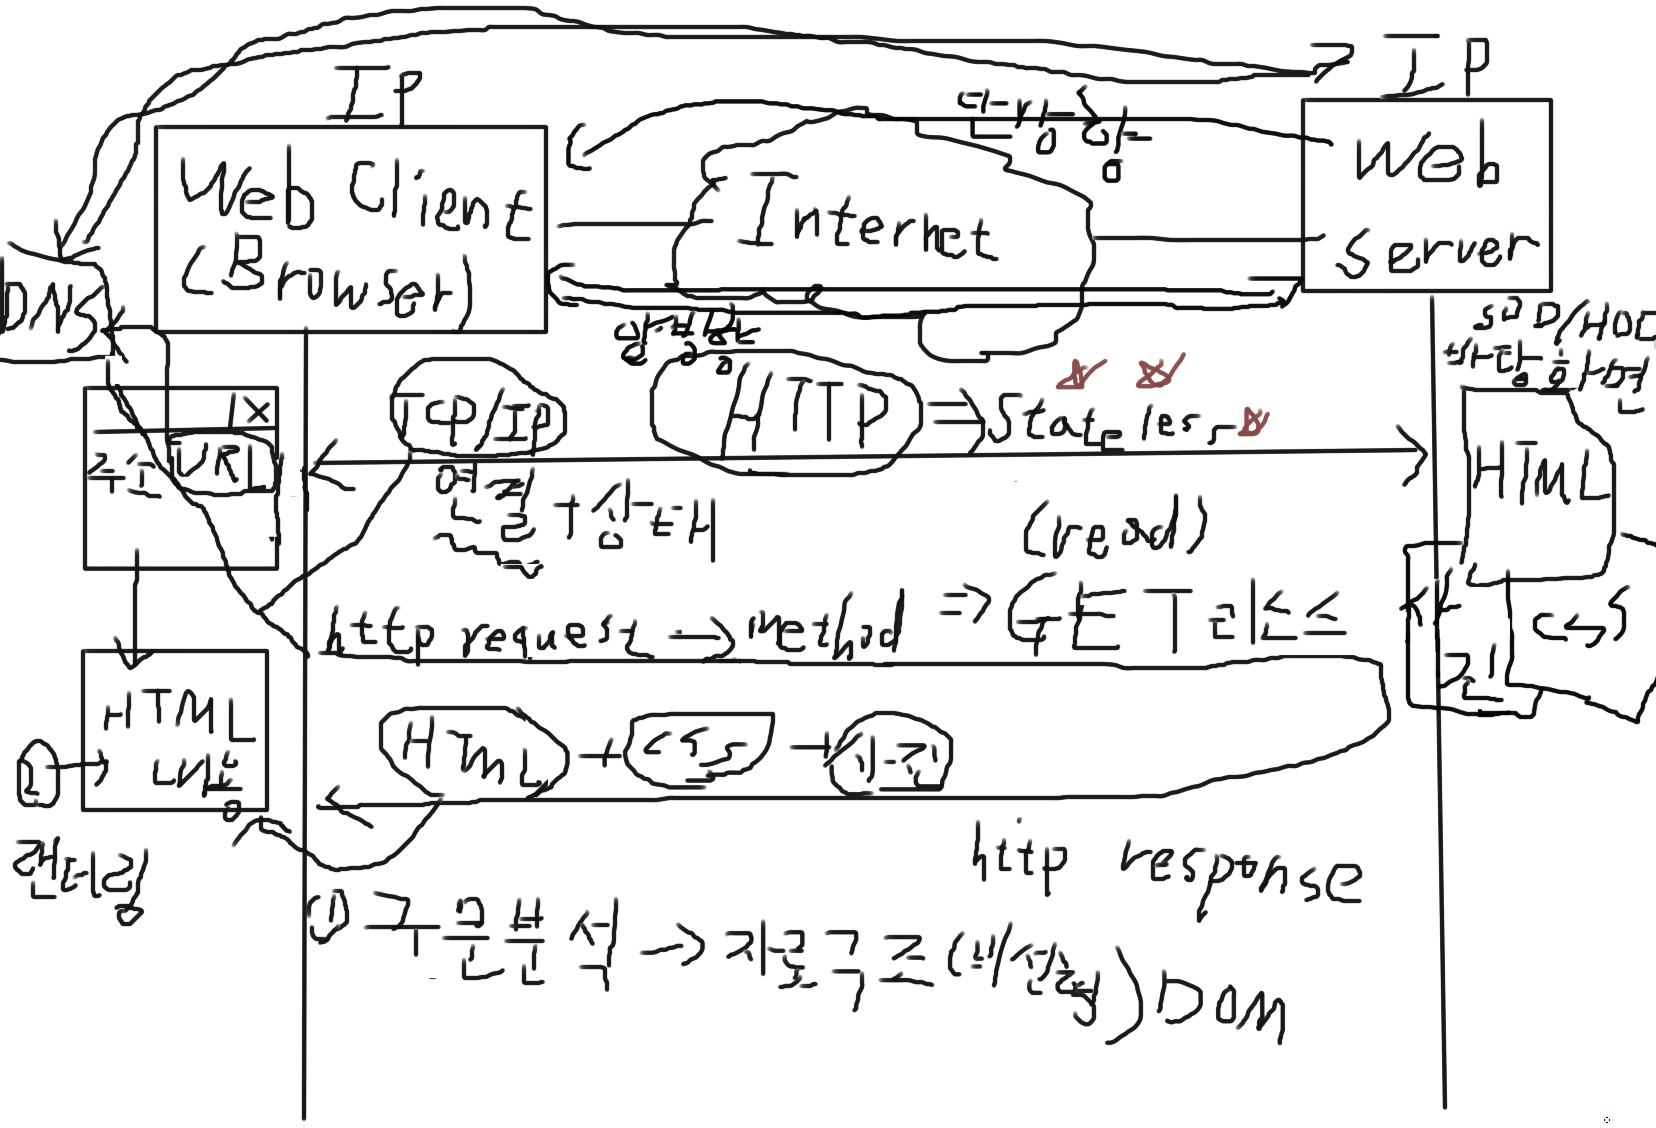 IP
IP
단방향
Web Client
(Browser)
Internet
Web
Server
DNS
양방향
SSD/HDD
TCP/IP
HTTP ⇒ Stateless
X
주소 URL
연결 + 상태
HTML
(read)
http request → method ⇒ GET 리소스
CSS
사진
HTML + CSS + 사진
HTML
내용
2 →
렌더링
http response
① 구문분석 → 자료구조 (비/선형) DOM